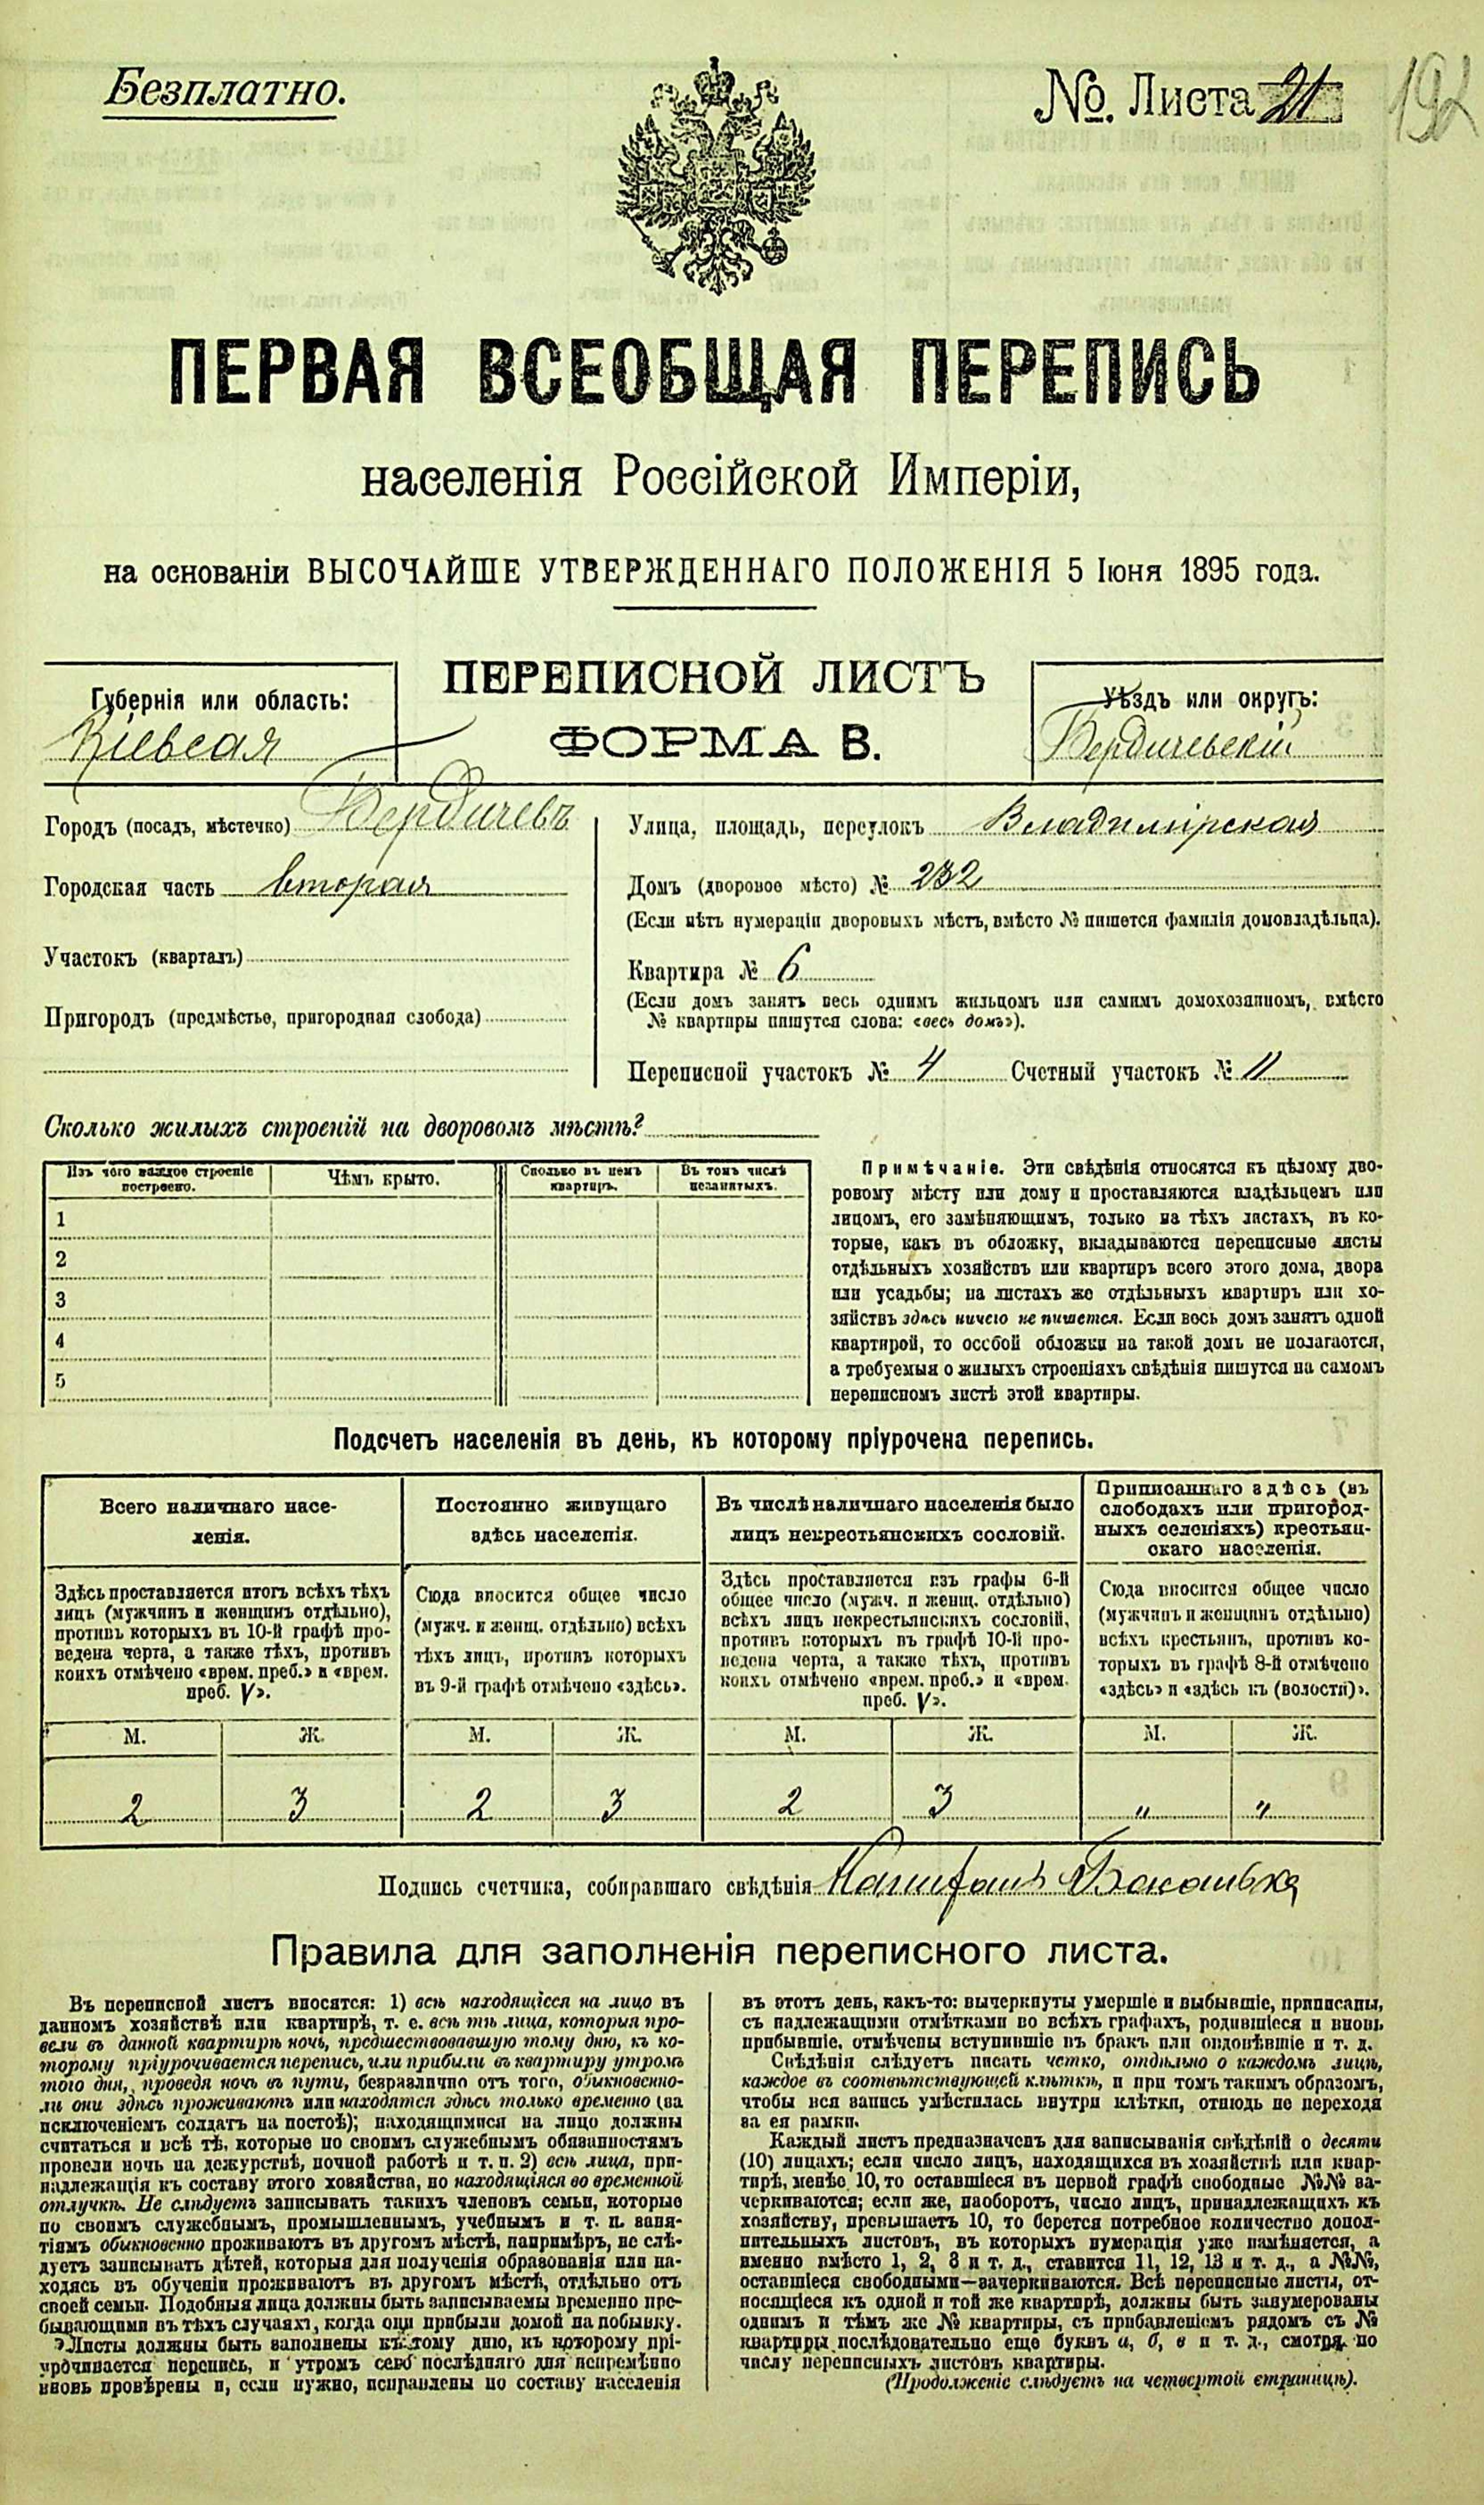 Безплатно.
№. Листа 21
192
ПЕРВАЯ ВСЕОБЩАЯ ПЕРЕПИСЬ
населенія Россійской Имперіи,
на основаніи ВЫСОЧАЙШЕ УТВЕРЖДЕННАГО ПОЛОЖЕНІЯ 5 Іюня 1895 года.
ПЕРЕПИСНОЙ ЛИСТЪ
ФОРМА В.
Губернія или область:
Кіевская
Уѣздъ или округъ:
Бердичевскій
Городъ (посадъ, мѣстечко) Бердичевъ
Городская часть вторая
Участокъ (кварталъ)
Пригородъ (предмѣстье, пригородная слобода)
Улица, площадь, переулокъ Владимірская
Домъ (дворовое мѣсто) № 232
(Если нѣтъ нумераціи дворовыхъ мѣстъ, вмѣсто № пишется фамилія домовладѣльца).
Квартира № 6
(Если домъ занятъ весь однимъ жильцомъ или самимъ домохозяиномъ, вмѣсто
№ квартиры пишутся слова: «весь домъ»).
Переписной участокъ № 4 Счетный участокъ № 11
Сколько жилыхъ строеній на дворовомъ мѣстѣ?
Изъ чего каждое строеніе построено.
Чѣмъ крыто.
Сколько въ немъ квартиръ.
Въ томъ числѣ незанятыхъ.
1
2
3
4
5
Примѣчаніе. Эти свѣдѣнія относятся къ цѣлому дво-
ровому мѣсту или дому и проставляются владѣльцемъ или
лицомъ, его замѣняющимъ, только на тѣхъ листахъ, въ ко-
торые, какъ въ обложку, вкладываются переписные листы
отдѣльныхъ хозяйствъ или квартиръ всего этого дома, двора
или усадьбы; на листахъ же отдѣльныхъ квартиръ или хо-
зяйствъ здѣсь ничего не пишется. Если весь домъ занятъ одной
квартирой, то особой обложки на такой домъ не полагается,
а требуемыя о жилыхъ строеніяхъ свѣдѣнія пишутся на самомъ
переписномъ листѣ этой квартиры.
Подсчетъ населенія въ день, къ которому пріурочена перепись.
Всего наличнаго насе-
ленія.
Здѣсь проставляется итогъ всѣхъ тѣхъ
лицъ (мужчинъ и женщинъ отдѣльно),
противъ которыхъ въ 10-й графѣ про-
ведена черта, а также тѣхъ, противъ
коихъ отмѣчено «врем. преб.» и «врем.
преб. V».
Постоянно живущаго
здѣсь населенія.
Сюда вносится общее число
(мужч. и женщ. отдѣльно) всѣхъ
тѣхъ лицъ, противъ которыхъ
въ 9-й графѣ отмѣчено «здѣсь».
Въ числѣ наличнаго населенія было
лицъ некрестьянскихъ сословій.
Здѣсь проставляется изъ графы 6-й
общее число (мужч. и женщ. отдѣльно)
всѣхъ лицъ некрестьянскихъ сословій,
противъ которыхъ въ графѣ 10-й про-
ведена черта, а также тѣхъ, противъ
коихъ отмѣчено «врем. преб.» и «врем.
преб. V».
Приписаннаго здѣсь (въ
слободахъ или пригород-
ныхъ селеніяхъ) крестьян-
скаго населенія.
Сюда вносится общее число
(мужчинъ и женщинъ отдѣльно)
всѣхъ крестьянъ, противъ ко-
торыхъ въ графѣ 8-й отмѣчено
«здѣсь» и «здѣсь къ (волости)».
М. Ж. М. Ж. М. Ж. М. Ж.
2 3 2 3 2 3 " "
Подпись счетчика, собиравшаго свѣдѣнія
Правила для заполненія переписного листа.
Въ переписной листъ вносятся: 1) всѣ находящіеся на лицо въ
данномъ хозяйствѣ или квартирѣ, т. е. всѣ тѣ лица, которыя про-
вели въ данной квартирѣ ночь, предшествовавшую тому дню, къ ко-
торому пріурочивается перепись, или прибыли въ квартиру утромъ
того дня, проведя ночь въ пути, безразлично отъ того, обыкновенно-
ли они здѣсь проживаютъ или находятся здѣсь только временно (за
исключеніемъ солдатъ на постоѣ); находящимися на лицо должны
считаться и всѣ тѣ, которые по своимъ служебнымъ обязанностямъ
провели ночь на дежурствѣ, ночной работѣ и т. п. 2) всѣ лица, при-
надлежащія къ составу этого хозяйства, но находящіяся во временной
отлучкѣ. Не слѣдуетъ записывать такихъ членовъ семьи, которые
по своимъ служебнымъ, промышленнымъ, учебнымъ и т. п. заня-
тіямъ обыкновенно проживаютъ въ другомъ мѣстѣ, напримѣръ, не слѣ-
дуетъ записывать дѣтей, которыя для полученія образованія или на-
ходясь въ обученіи проживаютъ въ другомъ мѣстѣ, отдѣльно отъ
своей семьи. Подобныя лица должны быть записываемы временно пре-
бывающими въ тѣхъ случаяхъ, когда они прибыли домой на побывку.
Листы должны быть заполнены къ тому дню, къ которому прі-
урочивается перепись, и утромъ сего послѣдняго дня непремѣнно
вновь провѣрены и, если нужно, исправлены по составу населенія
въ этотъ день, какъ-то: вычеркнуты умершіе и выбывшіе, приписаны,
съ надлежащими отмѣтками во всѣхъ графахъ, родившіеся и вновь
прибывшіе, отмѣчены вступившіе въ бракъ или овдовѣвшіе и т. д.
Свѣдѣнія слѣдуетъ писать четко, отдѣльно о каждомъ лицѣ,
каждое въ соотвѣтствующей клѣткѣ, и при томъ такимъ образомъ,
чтобы вся запись умѣстилась внутри клѣтки, отнюдь не переходя
за ея рамки.
Каждый листъ предназначенъ для записыванія свѣдѣній о десяти
(10) лицахъ; если число лицъ, находящихся въ хозяйствѣ или квар-
тирѣ, менѣе 10, то оставшіеся въ первой графѣ свободные №№ за-
черкиваются; если же, наоборотъ, число лицъ, принадлежащихъ къ
хозяйству, превышаетъ 10, то берется потребное количество допол-
нительныхъ листовъ, въ которыхъ нумерація уже намѣняется, а
именно вмѣсто 1, 2, 3 и т. д., ставится 11, 12, 13 и т. д., а №№,
оставшіеся свободными—зачеркиваются. Всѣ переписные листы, от-
носящіеся къ одной и той же квартирѣ, должны быть занумерованы
однимъ и тѣмъ же № квартиры, съ прибавленіемъ рядомъ съ №
квартиры послѣдовательно еще буквъ а, б, в и т. д., смотря по
числу переписныхъ листовъ квартиры.
(Продолженіе слѣдуетъ на четвертой страницѣ).